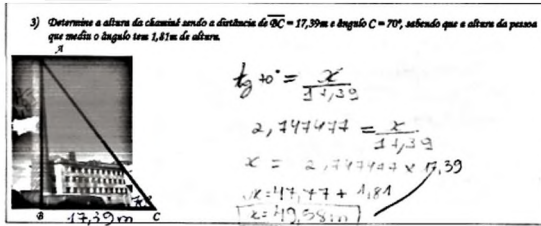 3) Determine a altura da chaminé sendo a distância de BC = 17,39m e ângulo C = 70°, sabendo que a altura da pessoa
que mediu o ângulo tem 1,81m de altura.
A
tg 70° = x
17,39
2,747477 = x
17,39
x = 2,747477 x 17,39
x = 47,77 + 1,81
x = 49,58m
B 17,39m C